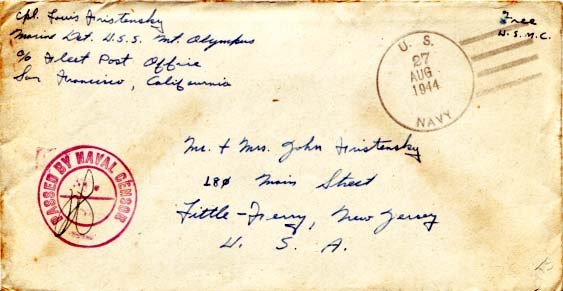 Cpl. Louis Fristensky
Marine Det. U.S.S. Mt. Olympus
c/o Fleet Post Office
San Francisco, California
Free
U.S.M.C.
U. S.
27
AUG
1944
NAVY
PASSED BY NAVAL CENSOR
Mr. + Mrs. John Fristensky
180 Main Street
Little-Ferry, New Jersey
U. S. A.